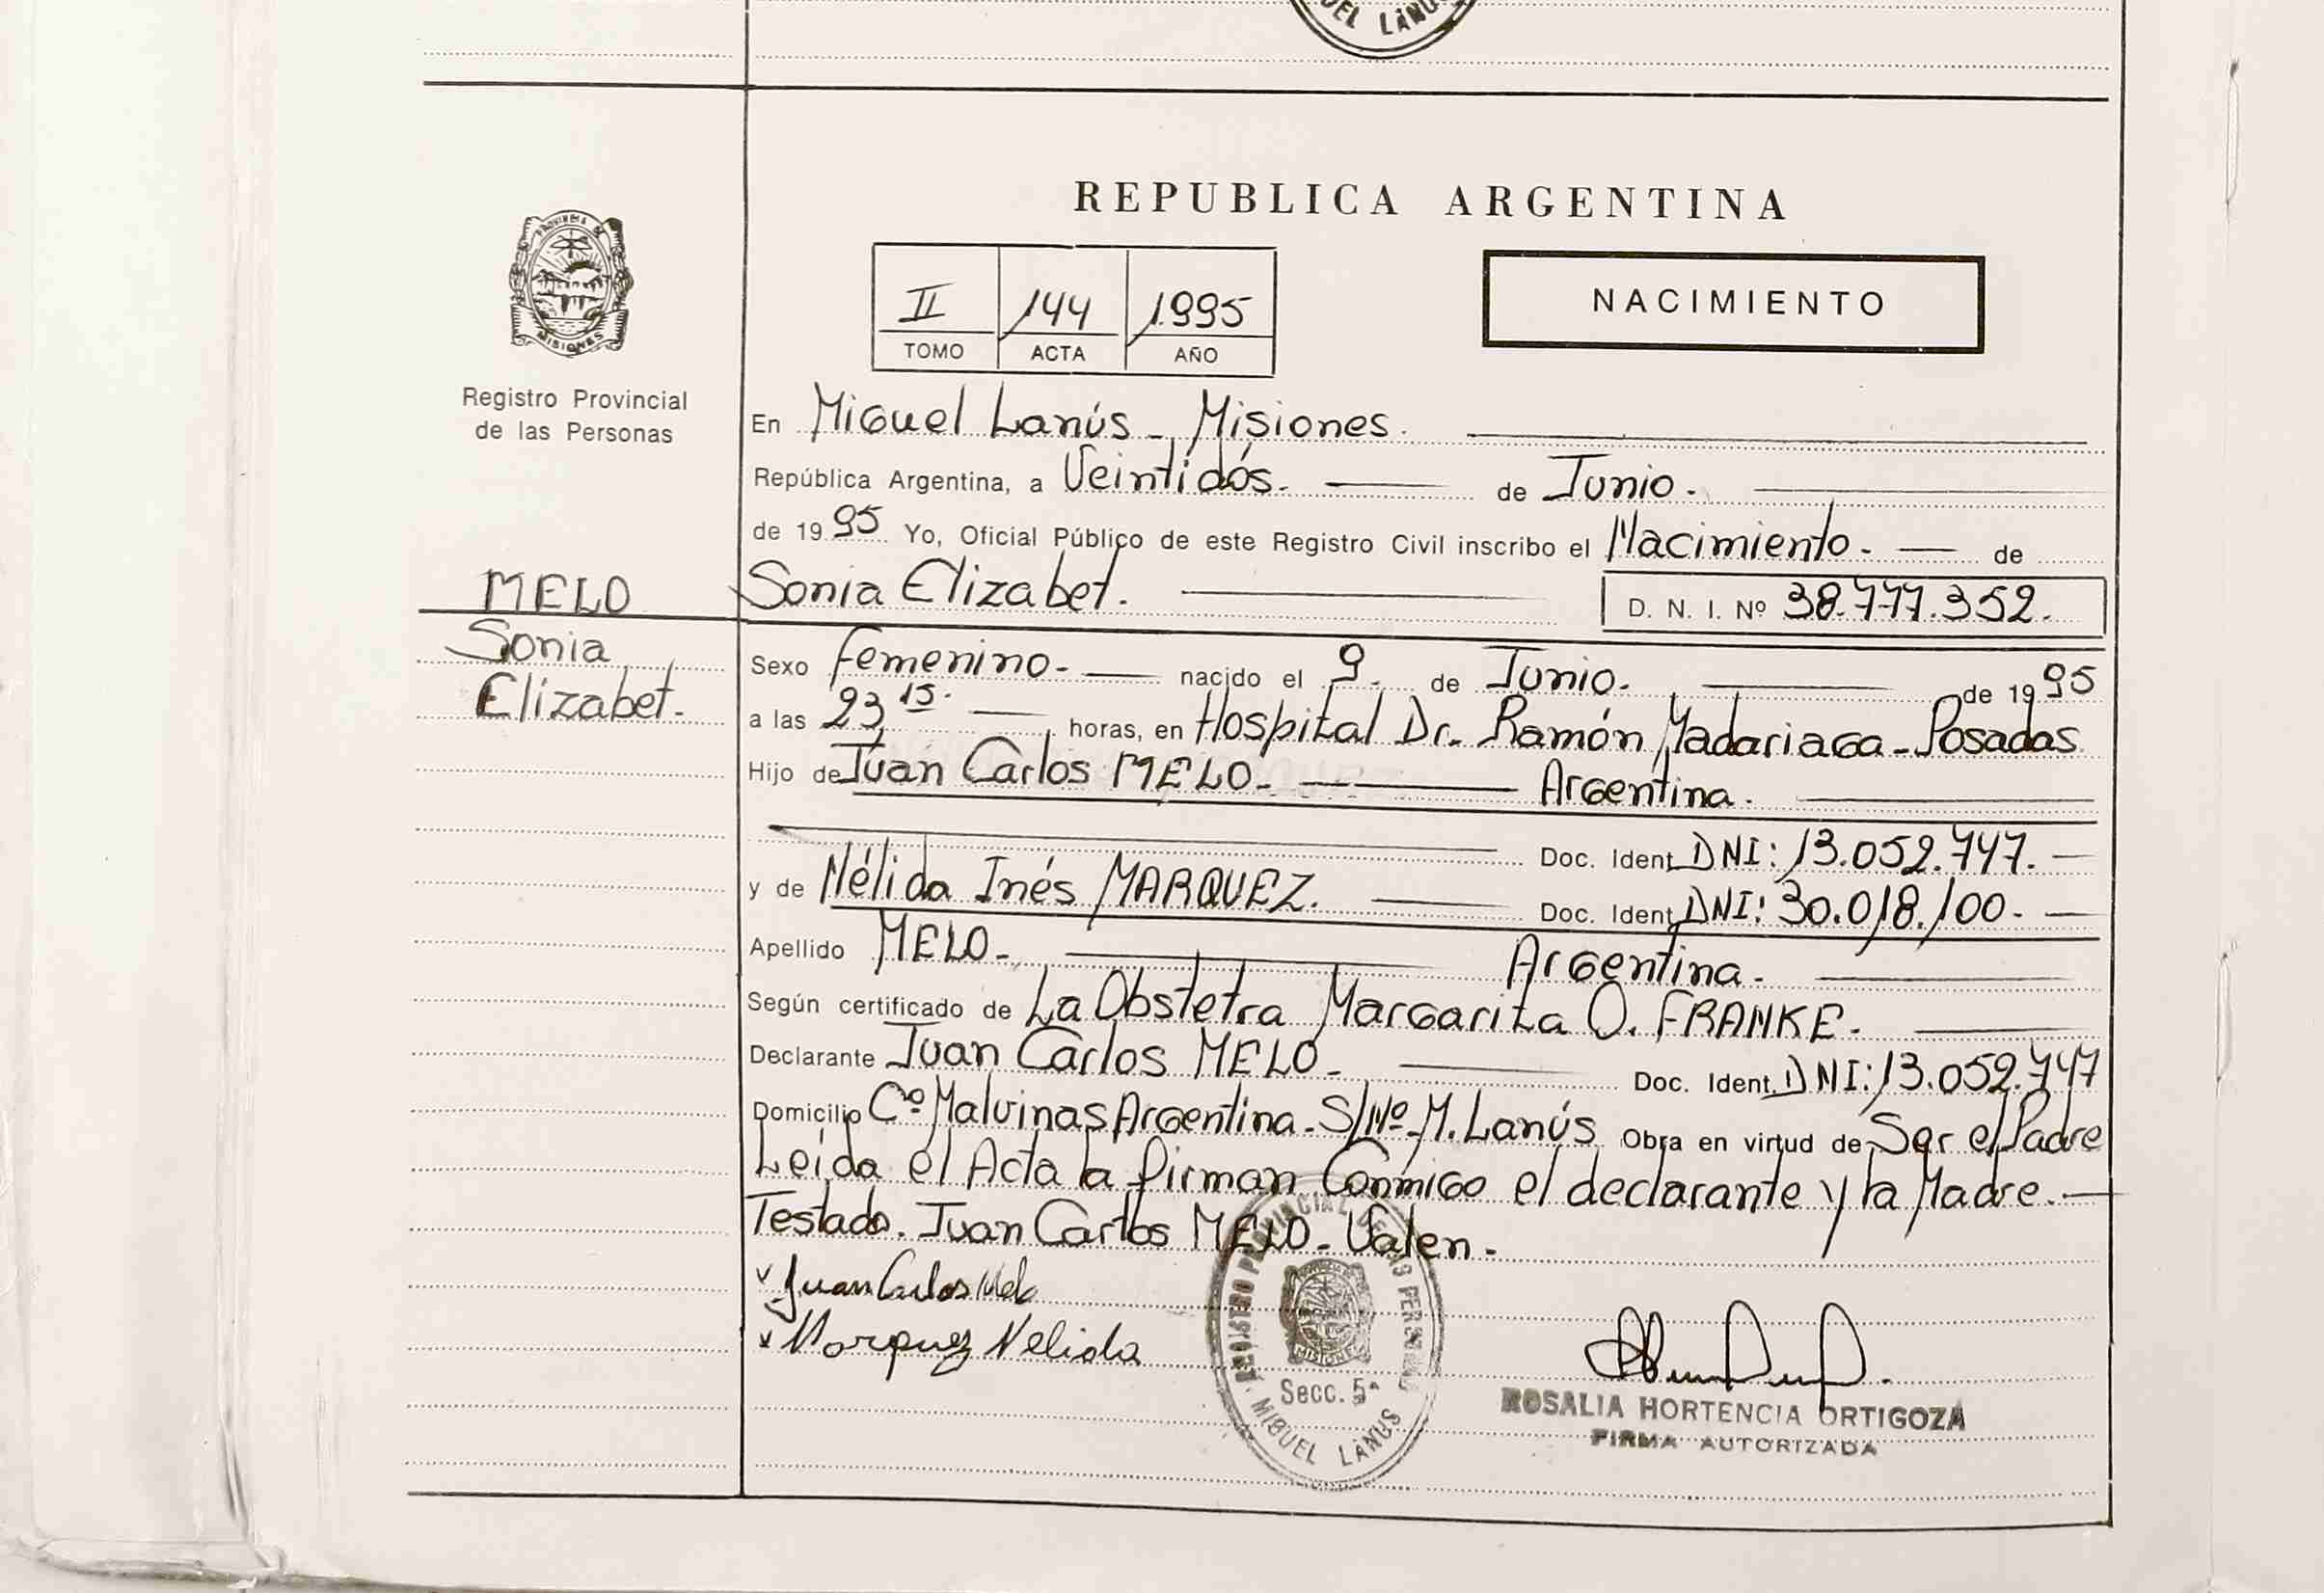 DEL LANUS
REPUBLICA ARGENTINA
PROVINCIA DE
MISIONES
II 144 1995
TOMO ACTA AÑO
NACIMIENTO
Registro Provincial
de las Personas
En Miguel Lanús - Misiones.
República Argentina, a Veintidós. de Junio.
de 1995 Yo, Oficial Público de este Registro Civil inscribo el Nacimiento. de
MELO Sonia Elizabet. D. N. I. Nº 38.777.352.
Sonia
Elizabet.
Sexo femenino. nacido el 9. de Junio. de 1995
a las 23,15. horas, en Hospital Dr. Ramón Madariaga - Posadas
Hijo de Juan Carlos MELO. Argentina.
Doc. Ident. DNI: 13.052.747.
y de Nélida Inés MARQUEZ. Doc. Ident. DNI: 30.018.100.
Apellido MELO. Argentina.
Según certificado de La Obstetra Margarita O. FRANKE.
Declarante Juan Carlos MELO. Doc. Ident. DNI: 13.052.747
Domicilio Cº Malvinas Argentina. S/Nº M. Lanús Obra en virtud de Ser el Padre
Leída el Acta la firman Conmigo el declarante y la Madre.
Testado. Juan Carlos MELO. Valen.
Juan Carlos Melo
Marquez Nelida
REGISTRO PROVINCIAL DE LAS PERSONAS
MISIONES
Secc. 5ª
MIGUEL LANUS
ROSALIA HORTENCIA ORTIGOZA
FIRMA AUTORIZADA